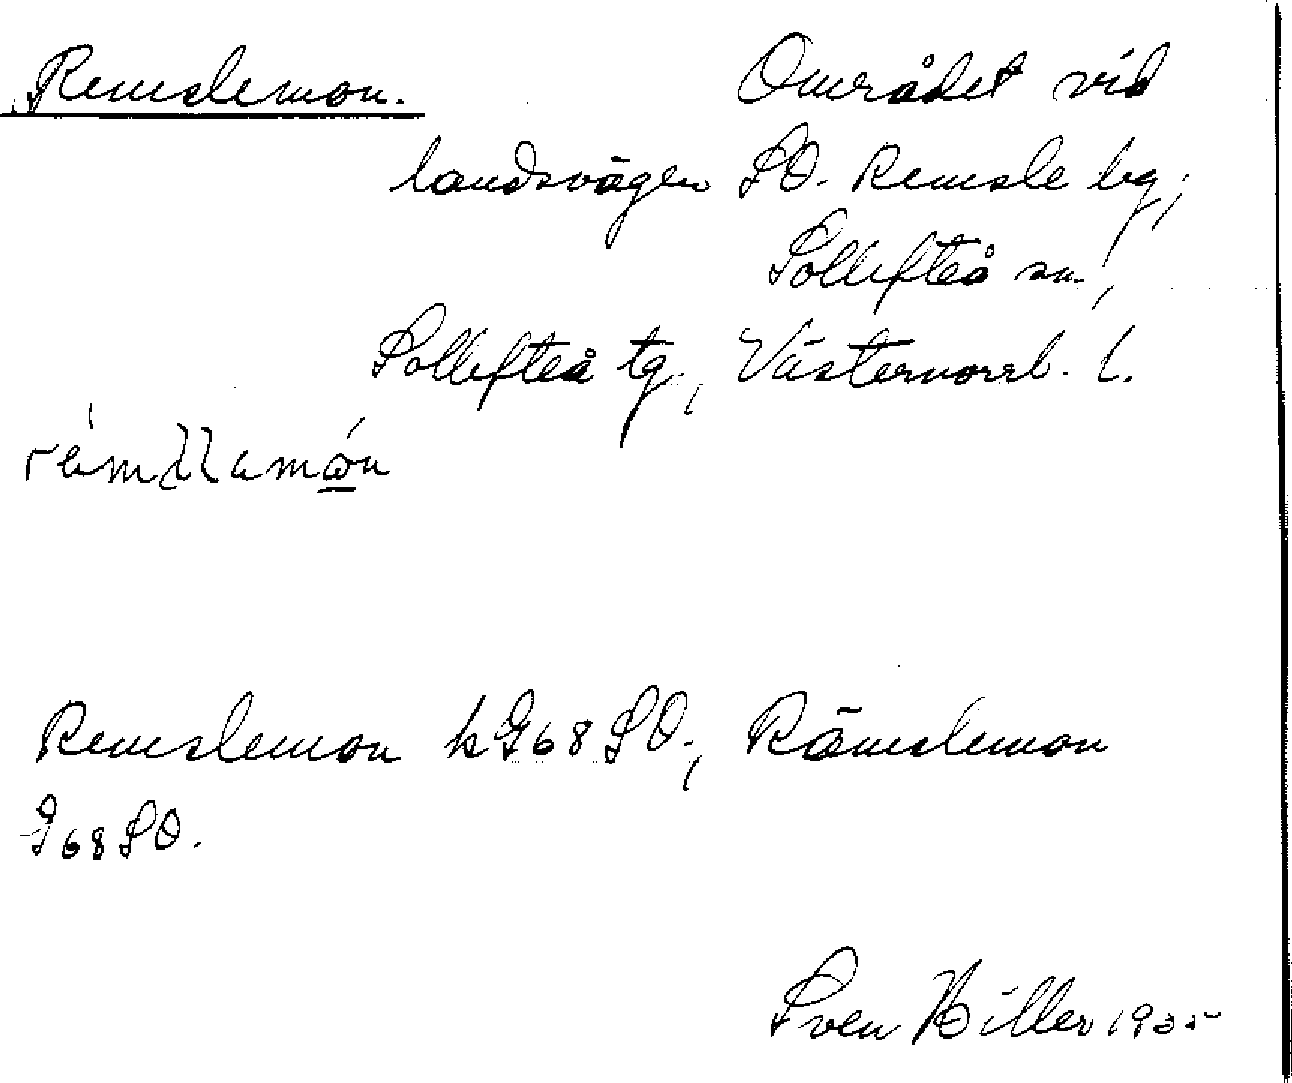 Remslemon. Området vid
landsvägen SO. Remsle bg,
Sollefteå sn.,
Sollefteå tg., Västernorrl. l.
Remslemon k G68 SO., Rämslemon
G68 SO.
Sven Hiller